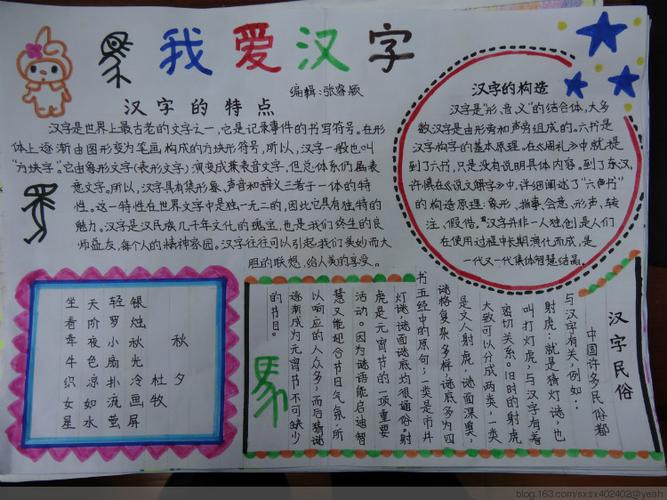 我爱汉字
编辑:张睿颖
汉字的特点
汉字是世界上最古老的文字之一,它是记录事件的书写符号。在形
体上逐渐由图形变为笔画构成的方块形符号。所以,汉字一般也叫
"方块字"。它由象形文字(表形文字)演变成兼表音文字,但总体系仍属表
意文字。所以,汉字具有集形象、声音和辞义三者于一体的特
性。这一特性在世界文字中是独一无二的,因此它具有独特的
魅力。汉字是汉民族几千年文化的瑰宝,也是我们终生的良
师益友,每个人的精神家园。汉字往往可以引起我们美妙而大
胆的联想,给人美的享受。
汉字的构造
汉字是"形、音、义"的结合体,大多
数汉字是由形旁和声旁组成的。六书是
汉字构字的基本原理,在《周礼》中就提
到了六书,只是没有说明具体内容。到了东汉,
许慎在《说文解字》中,详细阐述了"六书"
的构造原理:象形、指事、会意、形声、转
注、假借。汉字并非一人独创,是人们
在使用过程中长期演化而成,是
一代又一代集体智慧结晶。
秋夕
杜牧
银烛秋光冷画屏
轻罗小扇扑流萤
天阶夜色凉如水
坐看牵牛织女星
汉字民俗
中国许多民俗都
与汉字有关,例如:
射虎,就是猜灯谜,也
叫打灯虎,与汉字有着
密切关系。旧时的射虎
大致可以分成两类,一类
是文人射虎,谜面深奥,
谜格复杂多样,谜底多为四
书五经中的原句;一类是市井
灯谜,谜面谜底均很通俗。射
虎是元宵节的一项重要
活动。因为谜语能启迪智
慧又能迎合节日气氛,所
以响应的人众多,而后猜谜
逐渐成为元宵节不可缺少
的节目。
blog.163.com/sxsx402402@yeah